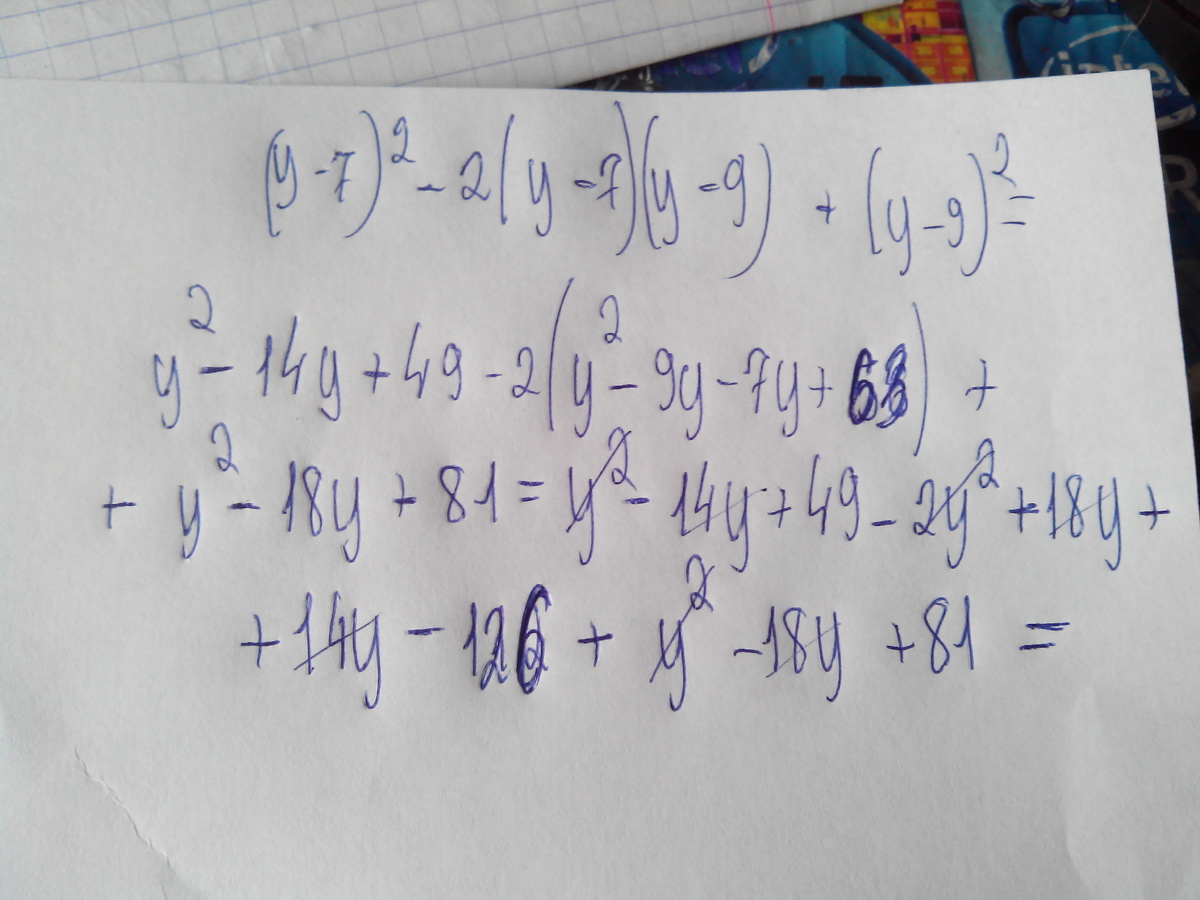 (y-7)² - 2(y-7)(y-9) + (y-9)² =
y² - 14y + 49 - 2(y² - 9y - 7y + 63) +
+ y² - 18y + 81 = y² - 14y + 49 - 2y² + 18y +
+ 14y - 126 + y² - 18y + 81 =